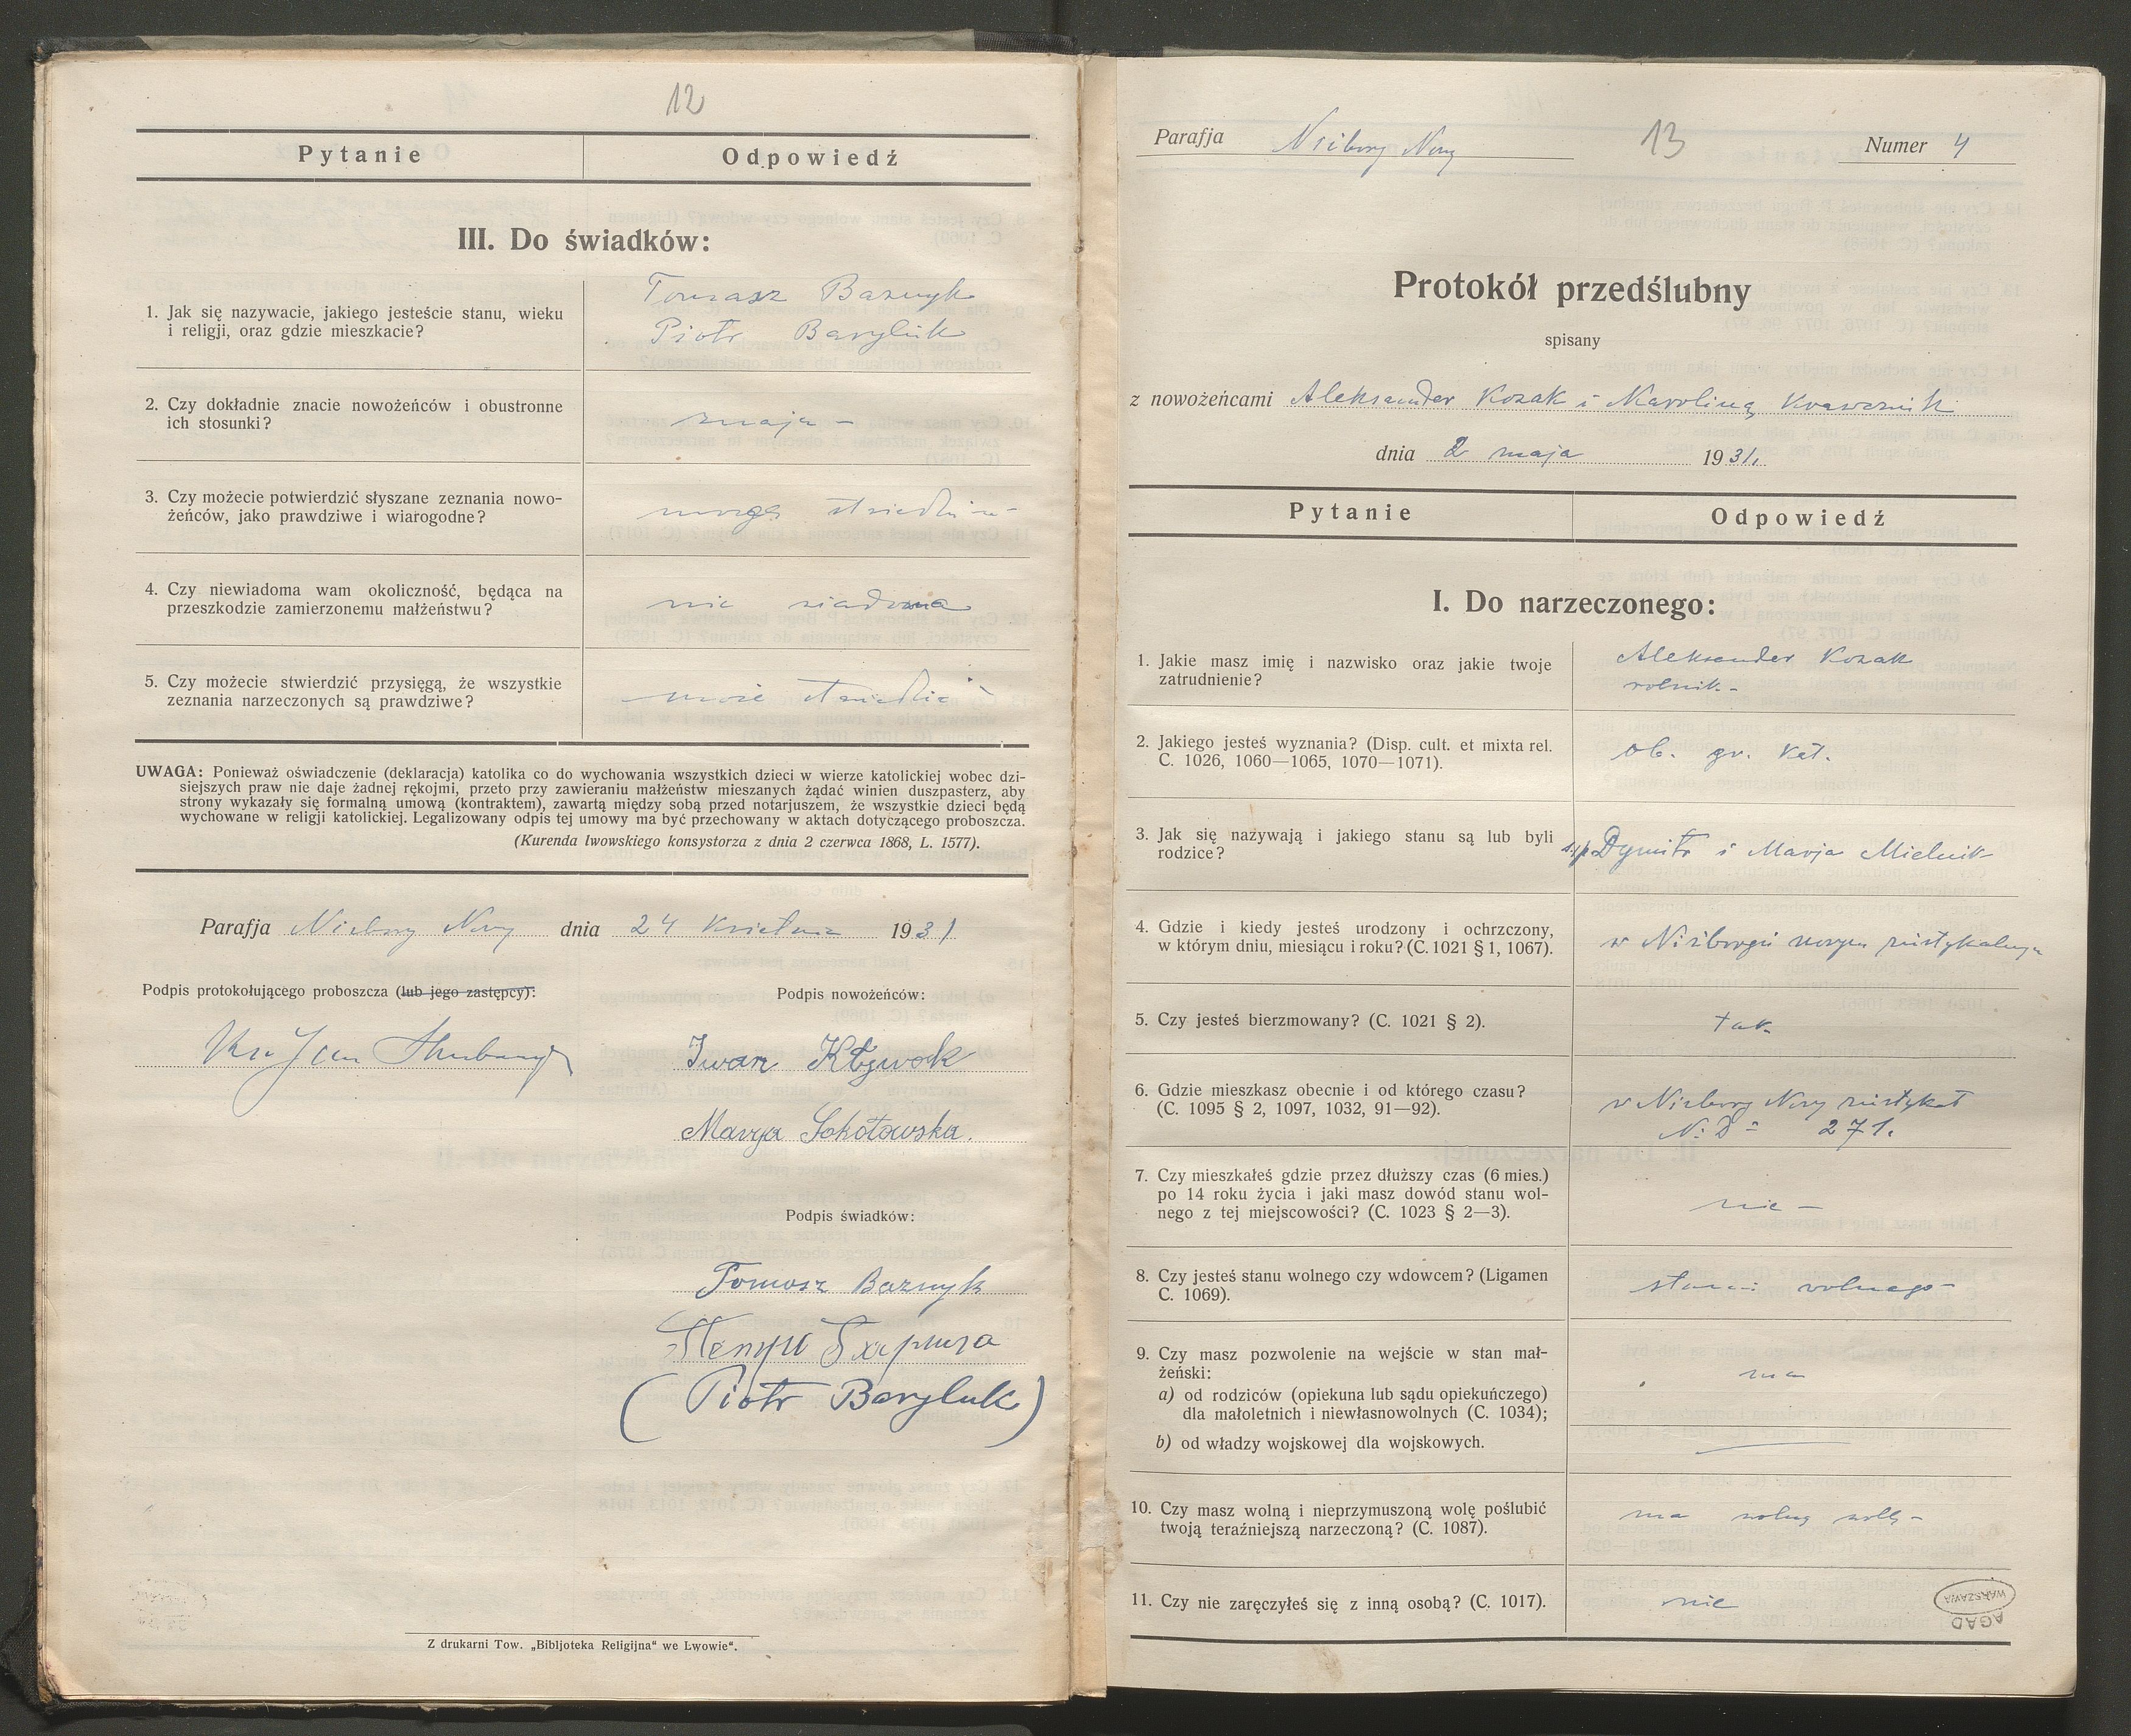 12
Pytanie
Odpowiedź
III. Do świadków:
1. Jak się nazywacie, jakiego jesteście stanu, wieku
i religji, oraz gdzie mieszkacie?
Tomasz
Piotr Baryluk
2. Czy dokładnie znacie nowożeńców i obustronne
ich stosunki?
znają -
3. Czy możecie potwierdzić słyszane zeznania nowo-
żeńców, jako prawdziwe i wiarogodne?
mogą
4. Czy niewiadoma wam okoliczność, będąca na
przeszkodzie zamierzonemu małżeństwu?
nie
5. Czy możecie stwierdzić przysięgą, że wszystkie
zeznania narzeczonych są prawdziwe?
UWAGA: Ponieważ oświadczenie (deklaracja) katolika co do wychowania wszystkich dzieci w wierze katolickiej wobec dzi-
siejszych praw nie daje żadnej rękojmi, przeto przy zawieraniu małżeństw mieszanych żądać winien duszpasterz, aby
strony wykazały się formalną umową (kontraktem), zawartą między sobą przed notarjuszem, że wszystkie dzieci będą
wychowane w religji katolickiej. Legalizowany odpis tej umowy ma być przechowany w aktach dotyczącego proboszcza.
(Kurenda lwowskiego konsystorza z dnia 2 czerwca 1868, L. 1577).
Parafja Niżborg Nowy dnia 24 kwietnia 1931
Podpis protokołującego proboszcza (lub jego zastępcy):
Podpis nowożeńców:
Jan
Iwan Kływak
Marya Sokołowska.
Podpis świadków:
Tomasz
(Piotr Baryluk)
Z drukarni Tow. „Bibljoteka Religijna“ we Lwowie“.
Parafja Niżborg Nowy
13
Numer 4
Protokół przedślubny
spisany
z nowożeńcami Aleksander Kozak i Karoliną Krawcznik
dnia 2 maja 1931.
Pytanie
Odpowiedź
I. Do narzeczonego:
1. Jakie masz imię i nazwisko oraz jakie twoje
zatrudnienie?
Aleksander Kozak
rolnik -
2. Jakiego jesteś wyznania? (Disp. cult. et mixta rel.
C. 1026, 1060—1065, 1070—1071).
ob. gr. kat.
3. Jak się nazywają i jakiego stanu są lub byli
rodzice?
ś.p. Dymitr i Marja Mielnik
4. Gdzie i kiedy jesteś urodzony i ochrzczony,
w którym dniu, miesiącu i roku? (C. 1021 § 1, 1067).
w Niżborgu nowym rustykalnym
5. Czy jesteś bierzmowany? (C. 1021 § 2).
tak
6. Gdzie mieszkasz obecnie i od którego czasu?
(C. 1095 § 2, 1097, 1032, 91—92).
w Niżborg Nowy rustykał
N. D = 271.
7. Czy mieszkałeś gdzie przez dłuższy czas (6 mies.)
po 14 roku życia i jaki masz dowód stanu wol-
nego z tej miejscowości? (C. 1023 § 2—3).
nie -
8. Czy jesteś stanu wolnego czy wdowcem? (Ligamen
C. 1069).
stanu wolnego -
9. Czy masz pozwolenie na wejście w stan mał-
żeński:
a) od rodziców (opiekuna lub sądu opiekuńczego)
dla małoletnich i niewłasnowolnych (C. 1034);
ma
b) od władzy wojskowej dla wojskowych.
10. Czy masz wolną i nieprzymuszoną wolę poślubić
twoją teraźniejszą narzeczoną? (C. 1087).
ma wolną wolę -
11. Czy nie zaręczyłeś się z inną osobą? (C. 1017).
nie
AGAD
WARSZAWA